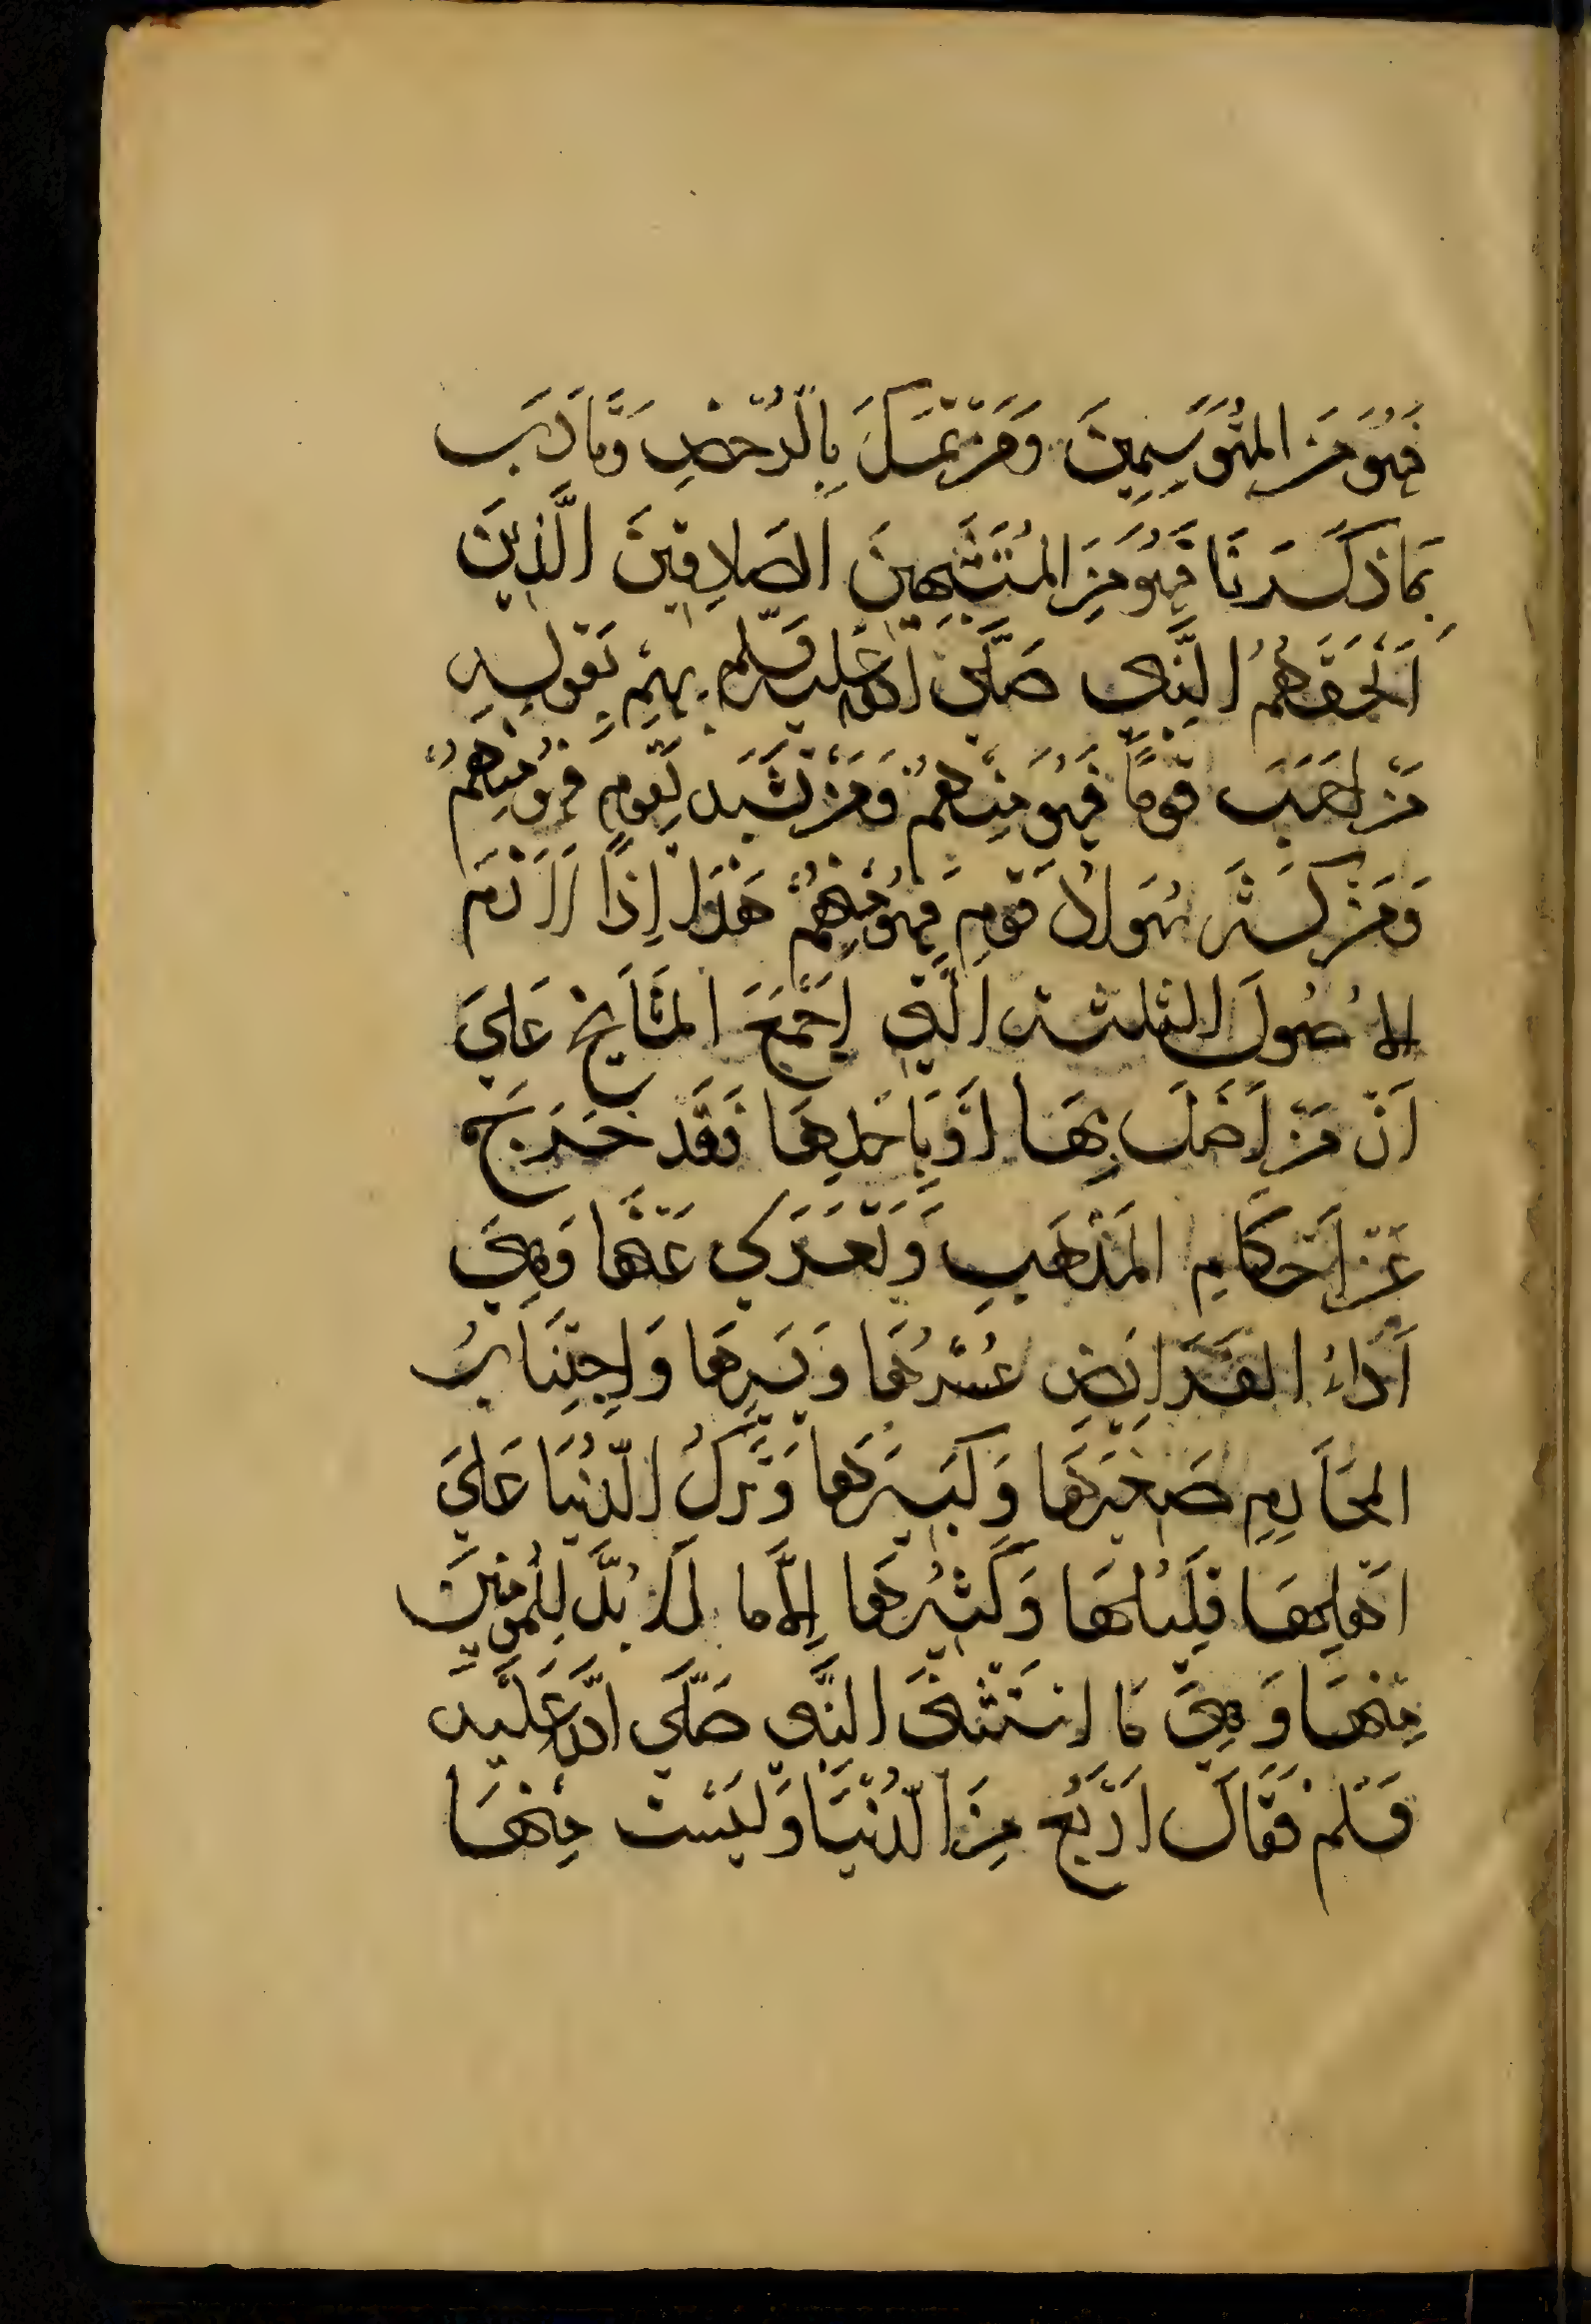 فَهُوَ مِنَ المُتَوَسِّمِينَ وَمَنْ تَمَسَّكَ بِالرُّخَصِ وَتَأَدَّبَ
بِمَا ذَكَرْنَا فَهُوَ مِنَ المُتَشَبِّهِينَ الصَّادِقِينَ الَّذِينَ
أَلْحَقَهُمُ النَّبِي صَلَّى اللَّه عَلَيه وَسَلَّم بِهِمْ بِقَوْلِهِ
مَنْ اَحَبَّ قَوْمًا فَهُوَ مِنْهُمْ وَمَنْ تَشَبَّهَ بِقَوْمٍ فَهُوَ مِنْهُمْ
وَمَنْ كَثَّرَ سَوَادَ قَوْمٍ فَهُوَ مِنْهُمْ هَذَا إِذَا الْتَزَمَ
الاُصُولَ الثلثة الَّتِي اَجْمَعَ المَشَايِخ عَلَى
اَنّ مَنْ اَخَلَّ بِهَا اَوْ بِاَحَدِهَا فَقَدْ خَرَجَ
عَنْ اَحْكَامِ المَذْهَبِ وَتَعَرَّى عَنْهَا وَهِيَ
اَدَاءُ الفَرَايِضِ عُسْرُهَا وَيُسْرِهَا وَاجْتِنَابُ
المَحَارِمِ صَغِيرَهَا وَكَبِيرَهَا وَتَرْكُ الدُّنْيَا عَلَى
اَهْلِهَا قَلِيلُهَا وَكَثِيرُهَا إِلَّا مَا لاَ بُدَّ لِلْمُؤْمِنِينَ
مِنْهَا وَهِيَ مَا اسْتَثْنَى النَّبِي صَلَّى اللَّه عَلَيْه
وَسَلم فَقَالَ اَرْبَعٌ مِنَ الدُّنْيَا وَلَيْسَتْ مِنْهَا